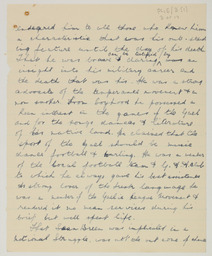 endeared him to all those who knew him
a characteristic that was his out stand
ing feature until the day of his death
while he was
insight into his military career and
the death that was his. He was a strong
advocate of the temperance movement &
non smoker. From boyhood he possessed a
keen interest in the games of the Gael
and for the songs dances & literature
of his native land. He claimed that the
sport of the Gael should be music
dance football & hurling. He was a member
of the local football team &
to which he always gave his best assistance
A strong lover of the Irish language he
was a member of the Gaelic League movement &
rendered it no mean services during his
brief but well spent life.
That was implicated in a
national struggle was not the outcome of